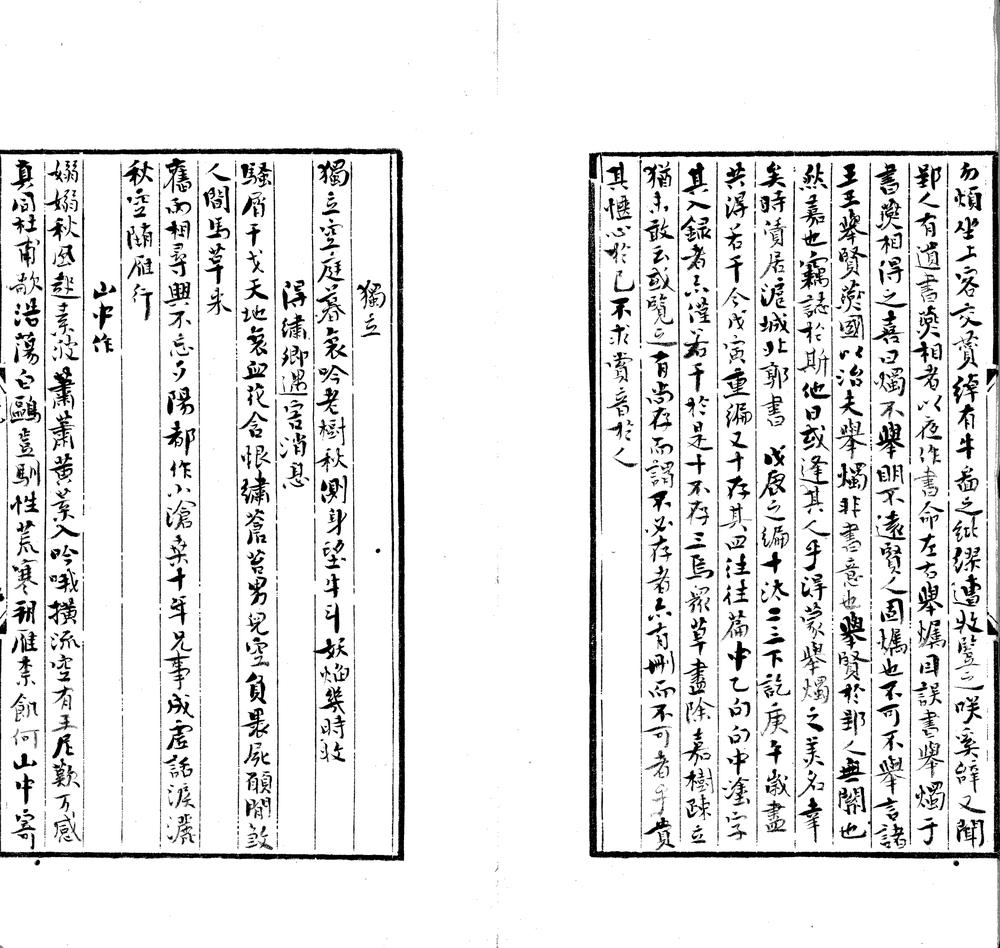 勿煩坐上客交賈綽有牛畝之紕繆遭收豎之咲奚辭又聞
郢人有遺書燕相者以夜作書命左右舉燭因誤書舉燭于
書燕相得之喜曰燭不舉明不遠賢人固燭也不可不舉言諸
王王舉賢燕國以治夫舉燭非書意也舉賢於郢人無關也
然嘉也竊誌於斯他日或逢其人乎得蒙舉燭之美名幸
矣時漬居滬城北郭書 戊辰之編十汰二三下訖庚午歲盡
共得若干今戊寅重編又十存其四往往篇中乙句句中塗字
其入録者亦僅若干於是十不存三焉罷草盡除嘉樹疎立
猶未敢云或覽之有尚存而謂不必存者亦有刪而不可者乎貴
其愜心於己不求賞音於人
獨立
獨立空庭暮哀吟老樹秋側身望牛斗妖焰幾時收
得繡卿遇害消息
騷屑干戈天地哀血花含恨繡蒼苔男兒空負裹屍願閒散
人間馬草來
舊雨相尋興不忘夕陽都作小滄桑十年兄事成虛話淚灑
秋空隨雁行
山中作
嫋嫋秋風起素波蕭蕭黃葉入吟哦橫流空有王尼歎万感
真同杜甫歌浩蕩白鷗豈馴性荒寒朔雁柰飢何山中寄